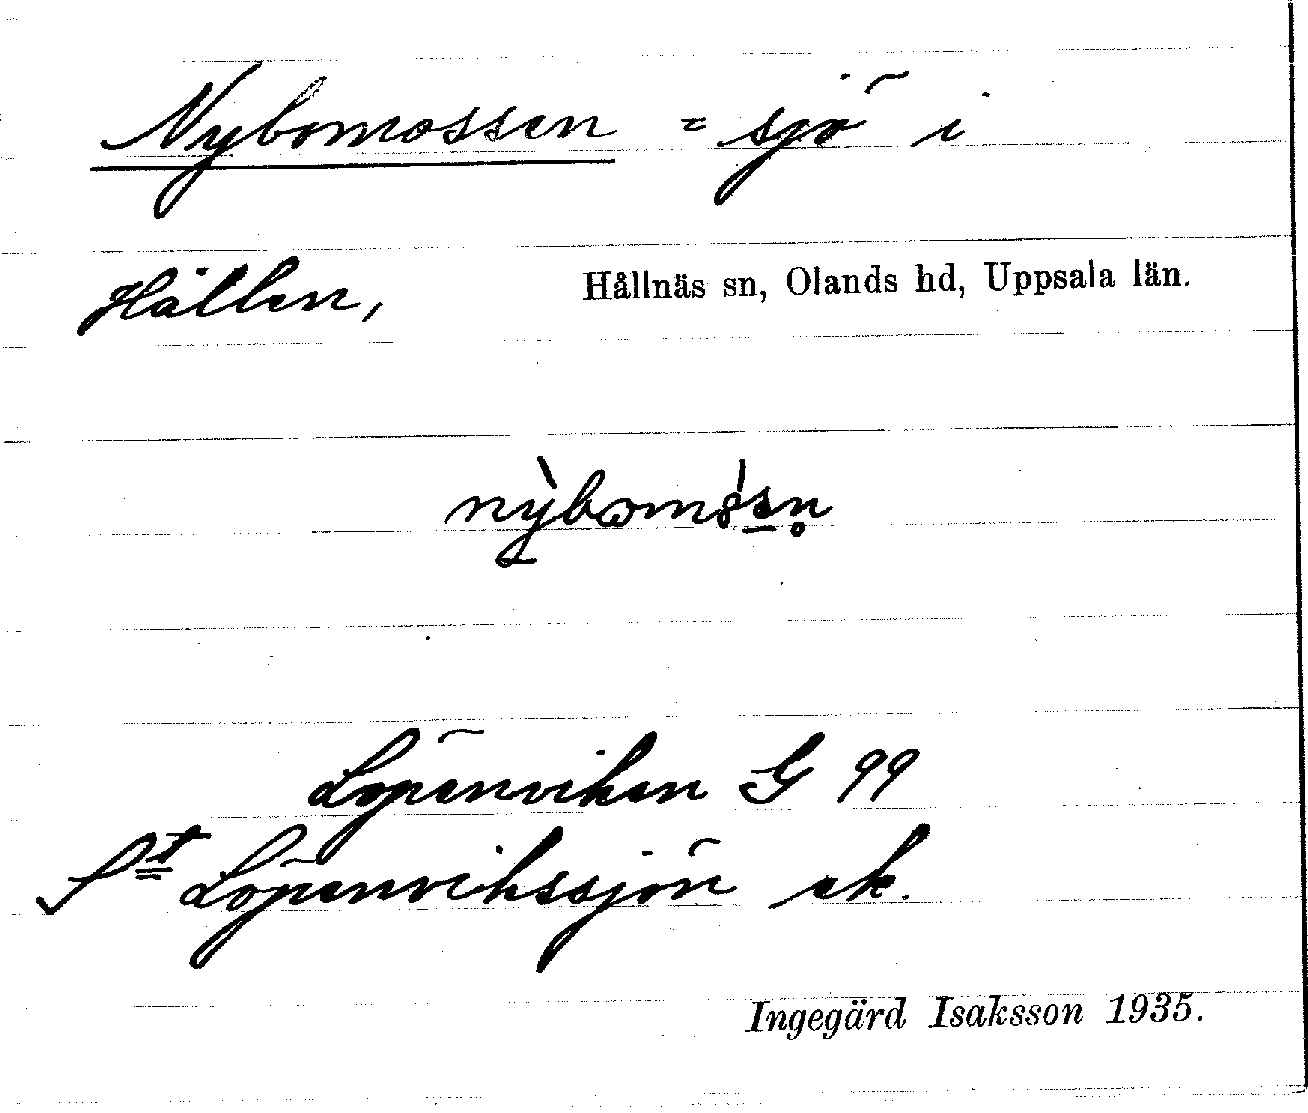 Nybomossen = sjö i
Hållen, Hållnäs sn, Olands hd, Uppsala län.
Löpanviken G 99
St Löpanvikssjön ek.
Ingegärd Isaksson 1935.